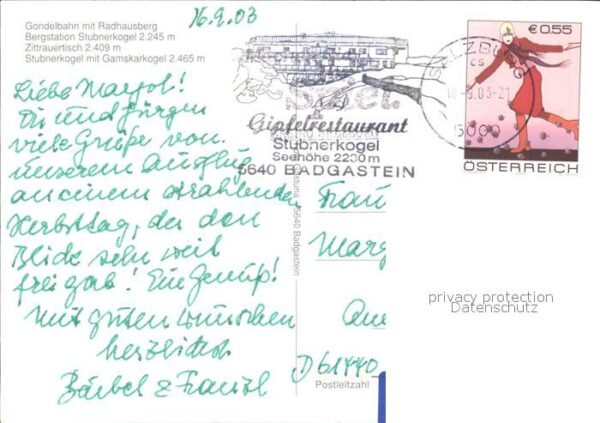 Gondelbahn mit Radhausberg
Bergstation Stubnerkogel 2.245 m
Zittrauertisch 2.409 m
Stubnerkogel mit Gamskarkogel 2.465 m
16.9.03
Liebe Margol!
Dir und Jürgen
viele Grüße von
unserem Ausflug
an einem strahlenden
Herbsttag, der den
Blick sehr weit
frei gab! Ein Genuß!
Mit guten Wünschen
herzlichst
Bärbel & Franzl
Gipfelrestaurant
Stubnerkogel
Seehöhe 2230 m
5640 BADGASTEIN
€ 0,55
SALZBURG
5000
ÖSTERREICH
5640 Badgastein
Frau
Marg
Que
D 61440
Postleitzahl
privacy protection
Datenschutz